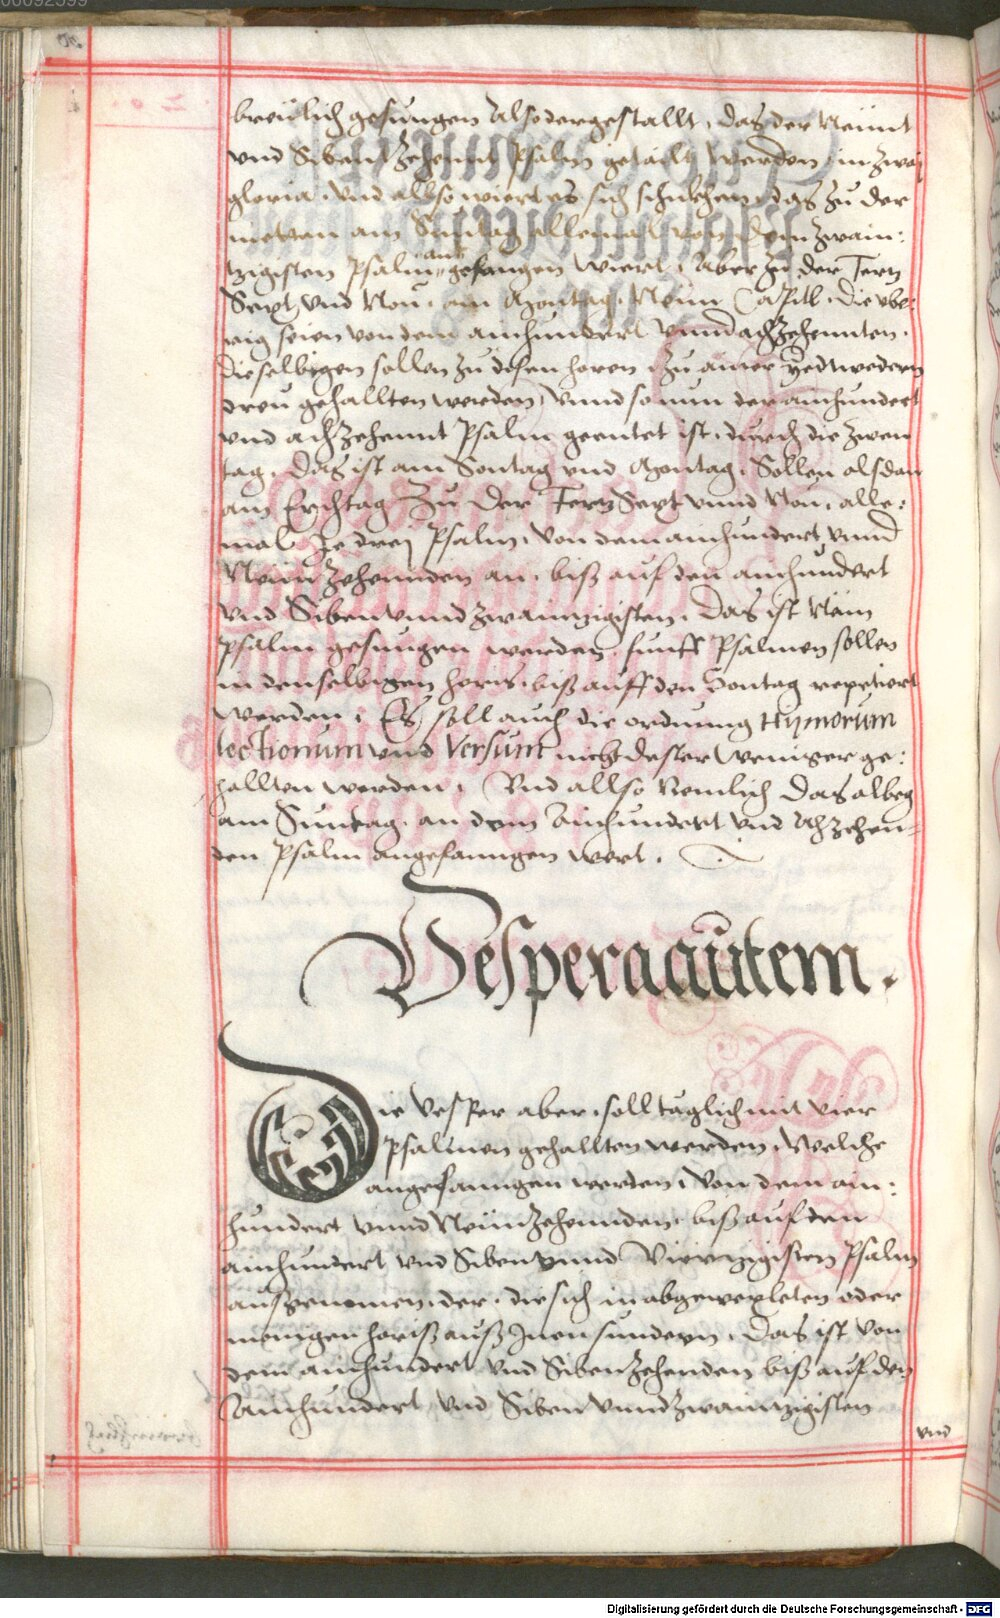 breüchlich gesungen also dergestallt, das der Neünt
vnd Sibentzehennt Psalm getailt werden, in zwaj
gloria, vnd allso wiert es sich schickhen, das zu der
metten am Suntag allemal von dem zwain:
tzigisten Psalm angefangen wiert, Aber zu der Tertz
Sext vnd Non, am Montag, Neün Capitl, die vbe:
rig seien von dem ainhundert vnnd achzehennten,
dieselbigen sollen zu disen horen, zu ainer yedtwedern
dreu gehallten werden, vnnd so nun der ainhundert
vnd achzehennt Psalm geentet ist, durch die zwen
tag, das ist am Sontag vnd Montag, Sollen alsdan
am Erchtag zu der Tertz Sext vnnd Non, alle:
mal Je drej Psalm, von dem ainhundert vnnd
Neünzehennden an, biß auf den ainhundert
vnd Sibenvnndzwainzigisten, Das ist Neün
psalm gesungen werden, funff Psalmen sollen
in denselbigen horis, biß auff den Sontag repetiert
werden, Es soll auch die ordnung Hymorum
lectionum vnd Versum nicht dester weniger ge:
hallten werden, Vnd allso Nemlich das albeg
am Suntag, an dem Ainhundert vnd Achzehen=
den Psalm angefanngen wert.
Vespera autem.
Die Vesper aber, soll täglich mit vier
Psalmen gehallten werden, Welche
angefanngen werden, von dem ain:
hundert vnnd Neünzehennden, biß auf den
ainhundert vnd Sibenvnnd Viertzigisten Psalm
ausgenomen, der, die sich in abgewexleten oder
menigen horis auß Jnen sundern, Das ist von
dem ainhundert vnd Sibenzehenden biß auf den
Ainhundert vnd Sibenvnndzwainzigisten
vnd
Digitalisierung gefördert durch die Deutsche Forschungsgemeinschaft - DFG